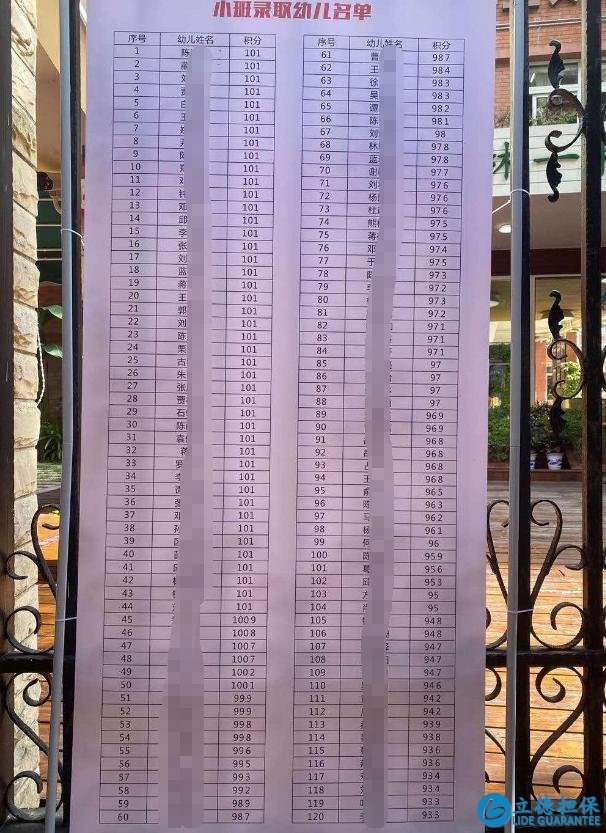 小班录取幼儿名单
序号 幼儿姓名 积分
1 陈 101
2 101
3 刘 101
4 黄 101
5 白 101
6 王 101
7 101
8 101
9 陈 101
10 郑 101
11 邓 101
12 钟 101
13 邓 101
14 邱 101
15 李 101
16 张 101
17 刘 101
18 蓝 101
19 蒋 101
20 王 101
21 郭 101
22 刘 101
23 陈 101
24 栗 101
25 古 101
26 朱 101
27 张 101
28 贾 101
29 石 101
30 陈 101
31 袁 101
32 蒋 101
33 罗 101
34 李 101
35 101
36 张 101
37 邓 101
38 孙 101
39 区 101
40 101
41 101
42 101
43 101
44 101
45 100.9
46 100.8
47 100.7
48 100.7
49 100.2
50 100.1
51 99.9
52 99.9
53 99.8
54 99.8
55 99.6
56 99.5
57 99.3
58 99.2
59 98.9
60 98.7
序号 幼儿姓名 积分
61 曹 98.7
62 王 98.4
63 徐 98.3
64 吴 98.3
65 谭 98.2
66 陈 98.1
67 刘 98
68 林 97.8
69 蓝 97.8
70 谢 97.7
71 刘 97.6
72 杨 97.6
73 杜 97.6
74 熊 97.5
75 蒋 97.5
76 邓 97.4
77 于 97.3
78 陈 97.3
79 李 97.2
80 97.2
81 97.2
82 97.1
83 97.1
84 97.1
85 97
86 97
87 97
88 97
89 96.9
90 96.9
91 96.8
92 96.8
93 古 96.8
94 王 96.8
95 俞 96.5
96 陈 96.3
97 马 96.2
98 杨 96.1
99 何 96
100 陈 95.9
101 95.6
102 邱 95.3
103 方 95
104 尚 95
105 94.8
106 94.8
107 94.7
108 94.7
109 94.7
110 94.6
111 94.2
112 94.2
113 93.9
114 93.8
115 93.6
116 93.6
117 93.4
118 93.4
119 93.3
120 93.3
立德担保
LIDE GUARANTEE